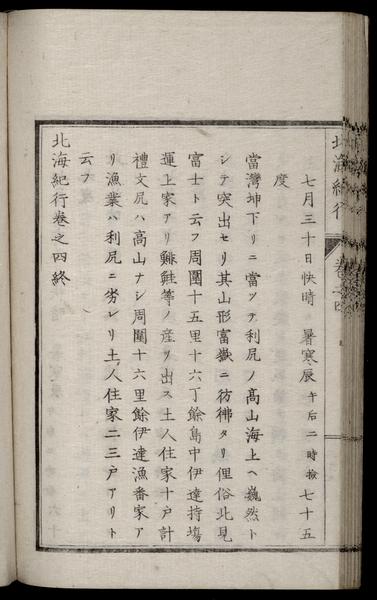 七月三十日快晴　暑寒辰午后二時撿七十五
度
當灣坤下リニ當ツテ利尻ノ高山海上ヘ巍然ト
シテ突出セリ其山形富嶽ニ彷彿タリ俚俗北見
富士ト云フ周圍十五里十六丁餘島中伊達持塲
運上家アリ鯡鮭等ノ産ヲ出ス土人住家十戸計
禮文尻ハ高山ナシ周圍十六里餘伊達漁番家ア
リ漁業ハ利尻ニ劣レリ土人住家二三戸アリト
云フ
北海紀行卷之四終
北海紀行
卷四